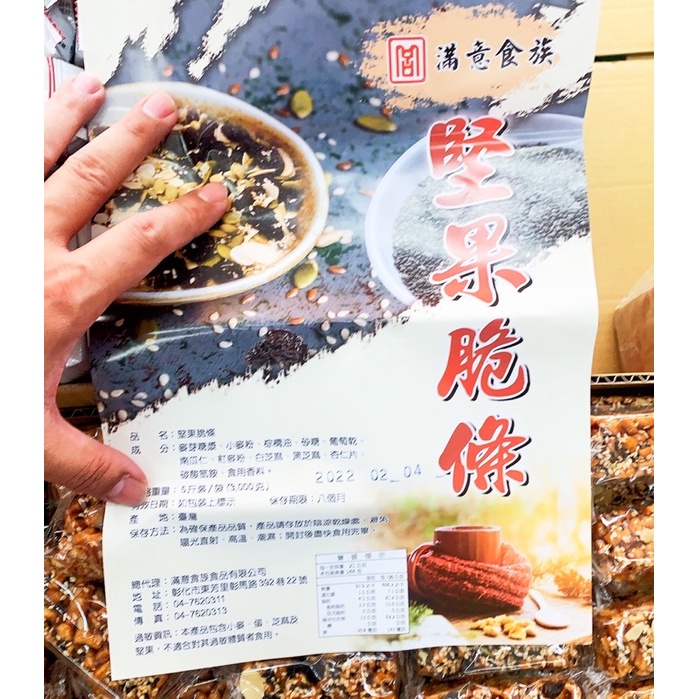 滿意食族
堅果脆條
品 名：堅果脆條
成 分：麥芽糖漿、小麥粉、棕櫚油、砂糖、葡萄乾、
南瓜仁、紅麥粉、白芝麻、黑芝麻、杏仁片、
碳酸氫銨、食用香料。
2022 02 04
重量：5斤裝/袋(3,000克)
有效日期：如包裝上標示 保存期限：八個月
產 地：臺灣
保存方法：為確保產品品質，產品請存放於陰涼乾燥處，避免
陽光直射、高溫、潮濕；開封後盡快食用完畢。
總代理：滿意食族食品有限公司
地 址：彰化市東芳里彰馬路392巷22號
電 話：04-7620311
傳 真：04-7620313
過敏資訊：本產品包含小麥、蛋、芝麻及
堅果，不適合對其過敏體質者食用。
營養標示